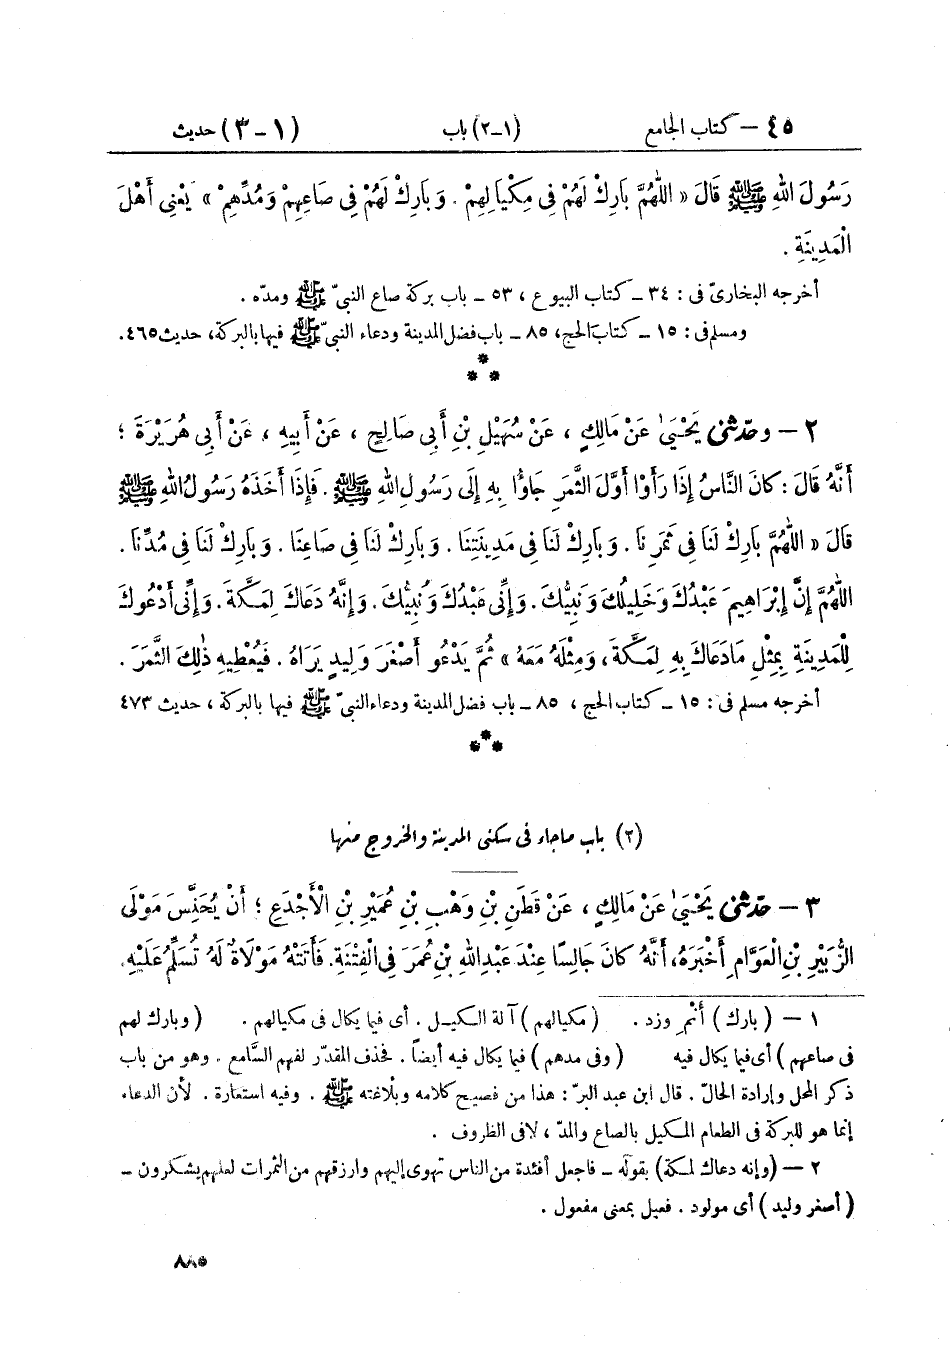 ٤٥ – كتاب الجامع (١–٢) باب (١ – ٣) حديث
رَسُولَ اللهِ ﷺ قَالَ « اللّٰهُمَّ بَارِكْ لَهُمْ فِى مِكْيَالِهِمْ . وَبَارِكْ لَهُمْ فِى صَاعِهِمْ وَمُدِّهِمْ » يَعْنِى أَهْلَ
الْمَدِينَةِ .
أخرجه البخارىّ فى : ٣٤ – كتاب البيوع ، ٥٣ – باب بركة صاع النبىّ ﷺ ومدّه .
ومسلم فى : ١٥ – كتاب الحج، ٨٥ – باب فضل المدينة ودعاء النبىّ ﷺ فيها بالبركة، حديث ٤٦٥.
***
٢ – وحدّثنى يَحْيَىٰ عَنْ مَالِكٍ ، عَنْ سُهَيْلِ بْنِ أَبِى صَالِحٍ ، عَنْ أَبِيهِ ، عَنْ أَبِى هُرَيْرَةَ ؛
أَنَّهُ قَالَ : كَانَ النَّاسُ إِذَا رَأَوْا أَوَّلَ الثَّمَرِ جَاؤُا بِهِ إِلَى رَسُولِ اللهِ ﷺ . فَإِذَا أَخَذَهُ رَسُولُ اللهِ ﷺ
قَالَ « اللّٰهُمَّ بَارِكْ لَنَا فِى ثَمَرِنَا . وَبَارِكْ لَنَا فِى مَدِينَتِنَا . وَبَارِكْ لَنَا فِى صَاعِنَا . وَبَارِكْ لَنَا فِى مُدِّنَا .
اللّٰهُمَّ إِنَّ إِبْرَاهِيمَ عَبْدُكَ وَخَلِيلُكَ وَنَبِيُّكَ . وَإِنِّى عَبْدُكَ وَنَبِيُّكَ . وَإِنَّهُ دَعَاكَ لِمَكَّةَ . وَإِنِّى أَدْعُوكَ
لِلْمَدِينَةِ بِمِثْلِ مَا دَعَاكَ بِهِ لِمَكَّةَ ، وَمِثْلَهُ مَعَهُ » ثُمَّ يَدْعُو أَصْغَرَ وَلِيدٍ يَرَاهُ . فَيُعْطِيهِ ذٰلِكَ الثَّمَرَ .
أخرجه مسلم فى : ١٥ – كتاب الحج ، ٨٥ – باب فضل المدينة ودعاء النبىّ ﷺ فيها بالبركة ، حديث ٤٧٣
***
(٢) باب ماجاء فى سكنى المدينة والخروج منها
٣ – حدّثنى يَحْيَىٰ عَنْ مَالِكٍ ، عَنْ قَطَنِ بْنِ وَهْبِ بْنِ عُمَيْرِ بْنِ الْأَجْدَعِ ؛ أَنْ يُحَنِّسَ مَوْلَى
الزُّبَيْرِ بْنِ الْعَوَّامِ أَخْبَرَهُ ، أَنَّهُ كَانَ جَالِسًا عِنْدَ عَبْدِ اللهِ بْنِ عُمَرَ فِى الْفِتْنَةِ . فَأَتَتْهُ مَوْلَاةٌ لَهُ تُسَلِّمُ عَلَيْهِ.
١ – ( بارك ) أَنْمِ وزد . ( مكيالهم ) آلة الكيل . أى فيما يكال فى مكيالهم . ( وبارك لهم
فى صاعهم ) أى فيما يكال فيه ( وفى مدهم ) فيما يكال فيه أيضاً . فحذف المقدّر لفهم السَّامع . وهو من باب
ذكر المحل وإرادة الحالّ . قال ابن عبد البرّ : هذا من فصيح كلامه وبلاغته ﷺ . وفيه استعارة . لأن الدعاء
إنما هو للبركة فى الطعام المكيل بالصاع والمدّ ، لا فى الظروف .
٢ – (وإنه دعاك لمكة) بقوله – فاجعل أفئدة من الناس تهوى إليهم وارزقهم من الثمرات لعلهم يشكرون –
( أصغر وليد ) أى مولود . فعيل بمعنى مفعول .
٨٨٥